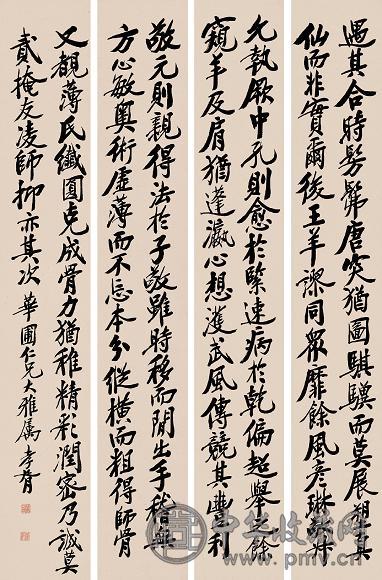 遇其合時髣髴唐突猶圖騏驥而莫展覩其
仙而非實爾後王羊謬同眾靡餘風彥琳
允執厥中孔則愈於緊速病於乾偏超舉餘
窺羊及肩猶蓬瀛心想濩武風傳競其豐利
敬元則親得法於子敬雖時移而間出手稽無
方心敏奧術虛薄而不忘本分縱橫而粗得師骨
又覩薄氏纖圓克成骨力猶稚精彩潤密乃誠莫
貳掩友凌師抑亦其次 華圃仁兄大雅屬 孝胥
中华收藏网
www.pmv.cn